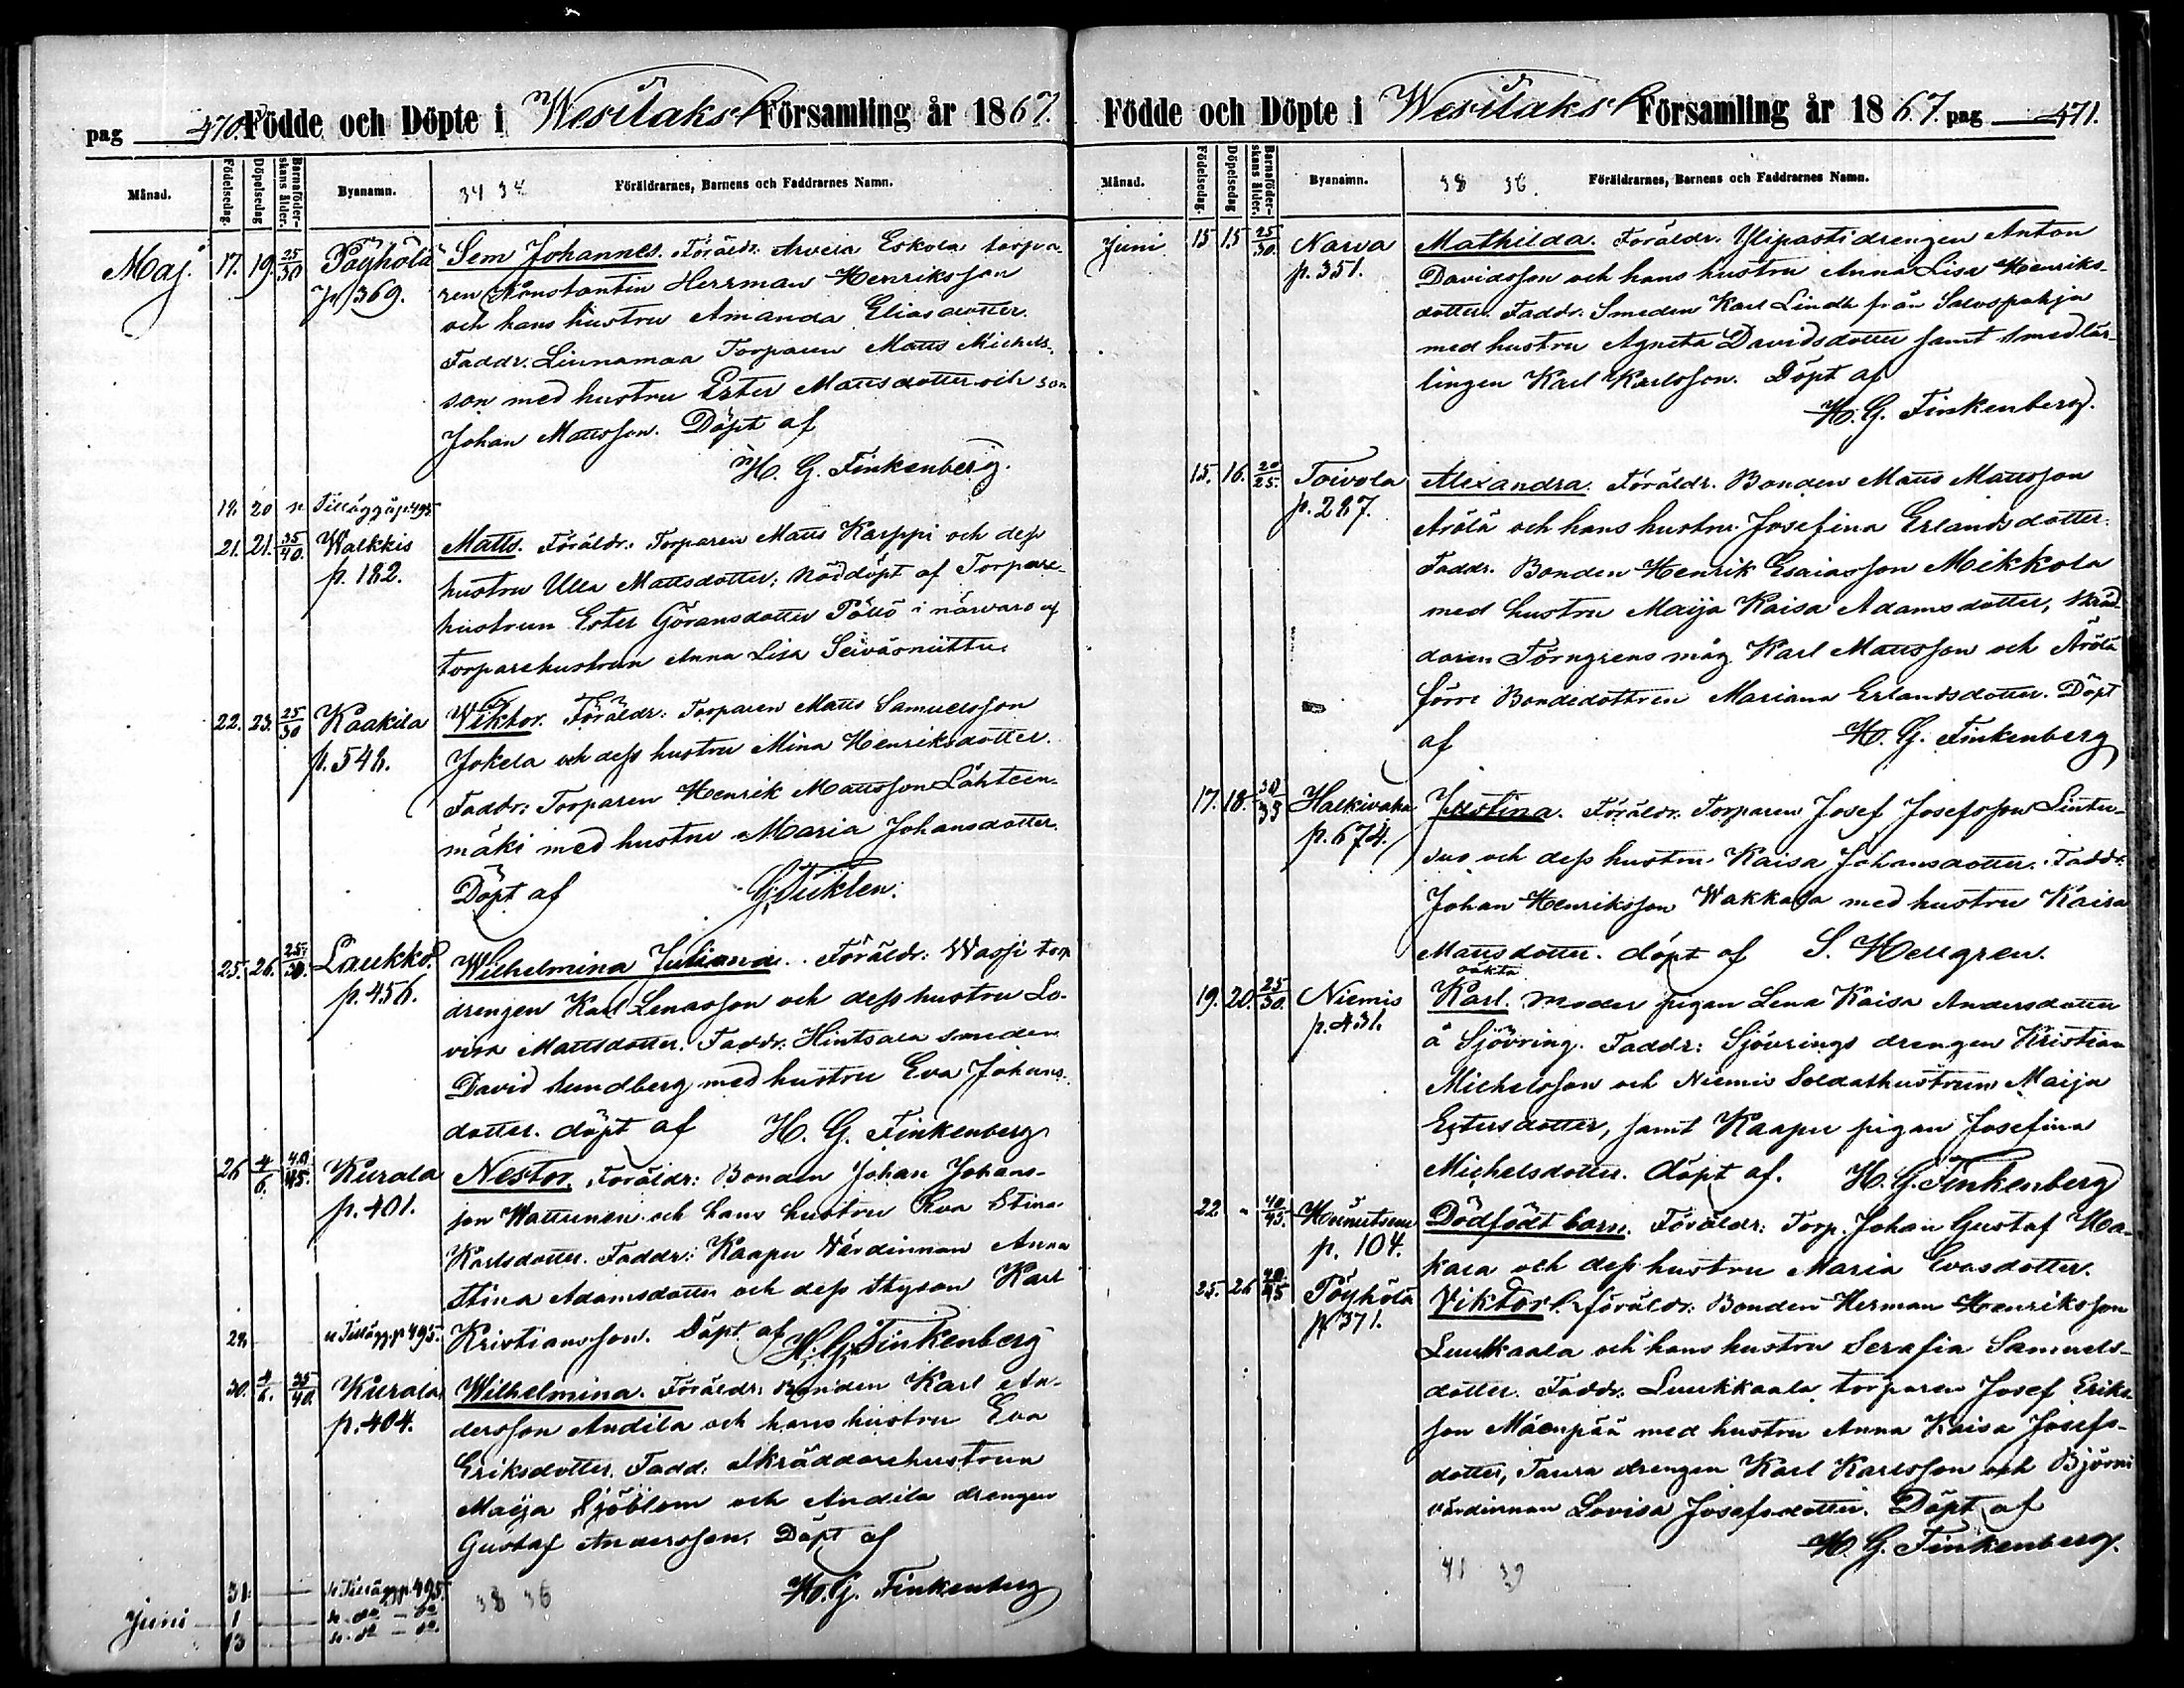 pag 470. Födde och Döpte i Wesilaks Församling år 1867.
Månad. Födelsedag. Döpelsedag Barnaföderskans ålder. Byanamn. 34 34 Föräldrarnes, Barnens och Faddrarnes Namn.
Maj. 17. 19. 25/30 Pöyhölä Sem Johannes. Föräldr. Arvela Eskola torpa-
p. 369. ren Konstantin Herrman Henriksson
och hans hustru Amanda Eliasdotter.
Faddr. Linnamaa Torparen Matts Michels-
son med hustru Ester Mattsdotter och son
Johan Mattsson. Döpt af
H. G. Finkenberg.
19. 20 Tillägg å p. 495
21. 21. 35/40. Walkkis Matts. Föräldr: Torparen Matts Karppi och dess
p. 182. hustru Ulla Mattsdotter; Nöddöpt af Torpare-
hustrun Ester Göransdotter Pöllö i närvaro af
torparehustrun Anna Lisa Seiväsniittu
22. 23. 25/30 Kaakila Wiktor. Föräldr: Torparen Matts Samuelsson
p. 548. Jokela och dess hustru Mina Henriksdotter.
Faddr: Torparen Henrik Mattsson Lähteen-
mäki med hustru Maria Johansdotter.
Döpt af
25. 26. 25/30. Laukko. Wilhelmina Juliana. Föräldr: Wassi torp
p. 456. drengen Karl Lenasson och dess hustru Lo-
visa Mattsdotter. Faddr. Hintsala smeden
David Lundberg med hustru Eva Johans-
dotter. döpt af H. G. Finkenberg
26 4/6. 40/45. Kurala Nestor. Föräldr: Bonden Johan Johans-
p. 401. son Wattunen och hans hustru Eva Stina
Karlsdotter. Faddr: Kaapu Värdinnan Anna
Stina Adamsdotter och dess styson Karl
28. Tillägg p 495. Kristiansson. Döpt af H. G. Finkenberg
30. 4/6. 35/40. Kurala Wilhelmina. Föräldr: Bonden Karl An-
p. 404. dersson Andila och hans hustru Eva
Eriksdotter. Fadd. Skräddarehustrun
Maija Sjöblom och Andila drengen
Gustaf Andersson. Döpt af
31. Tillägg p 495. 38 36 H. G. Finkenberg
Juni 1
13
Födde och Döpte i Wesilaks Församling år 1867. pag 471.
Månad. Födelsedag. Döpelsedag Barnaföderskans ålder. Byanamn. 38 36. Föräldrarnes, Barnens och Faddrarnes Namn.
Juni 15 15 25/30. Narva Mathilda. Föräldr. Ylipastidrengen Anton
p. 351. Davidsson och hans hustru Anna Lisa Henriks-
dotter. Faddr. Smeden Karl Lindh från Salospohja
med hustru Agneta Davidsdotter samt smedlär-
lingen Karl Karlsson. Döpt af
H. G. Finkenberg.
15. 16. 20/25. Toivola Alexandra. Föräldr. Bonden Matts Mattsson
p. 287. Arölä och hans hustru Josefina Erlandsdotter.
Faddr. Bonden Henrik Esaiasson Mikkola
med hustru Maija Kaisa Adamsdotter, skräd-
daren Törngrens måg Karl Mattsson och Arölä
förre Bondedottren Mariana Erlandsdotter. Döpt
af H. G. Finkenberg
17. 18. 30/35 Halkivaha Justina. Föräldr. Torparen Josef Josefsson Lintu-
p. 674. suo och dess hustru Kaisa Johansdotter. Faddr.
Johan Henriksson Wakkala med hustru Kaisa
Mattsdotter. döpt af S. Hellgren.
oäkta
19. 20. 25/30. Niemis Karl. Moder pigan Lena Kaisa Andersdotter
p. 431. å Sjövring. Faddr: Sjövrings drengen Kristian
Michelsson och Niemis Soldathustrun Maija
Estersdotter, samt Kaapu pigan Josefina
Michelsdotter. Döpt af. H. G. Finkenberg
22 40/45. Dödfödt barn. Föräldr: Torp. Johan Gustaf Ma-
p. 104. kara och dess hustru Maria Evasdotter.
25. 26 40/45 Pöyhölä Viktor. föräldr: Bonden Herman Henriksson
p 371. Luukkaala och hans hustru Serafia Samuels-
dotter. Faddr. Luukkaala torparen Josef Eriks-
son Mäenpää med hustru Anna Kaisa Josefs-
dotter, Taura drengen Karl Karlsson och Björni
värdinnan Lovisa Josefsdotter. Döpt af
H. G. Finkenberg.
41 39